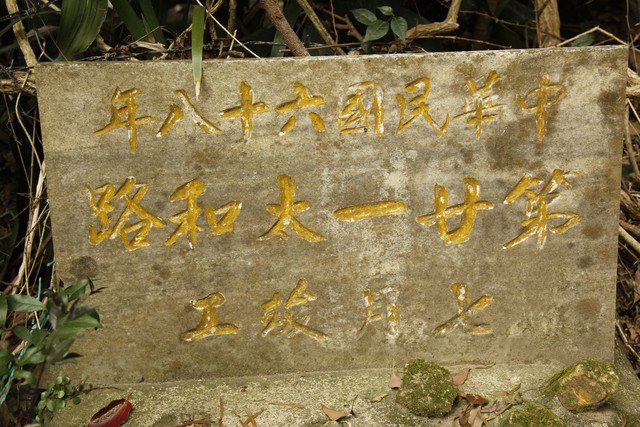 中華民國六十八年
第廿一太和路
七月竣工